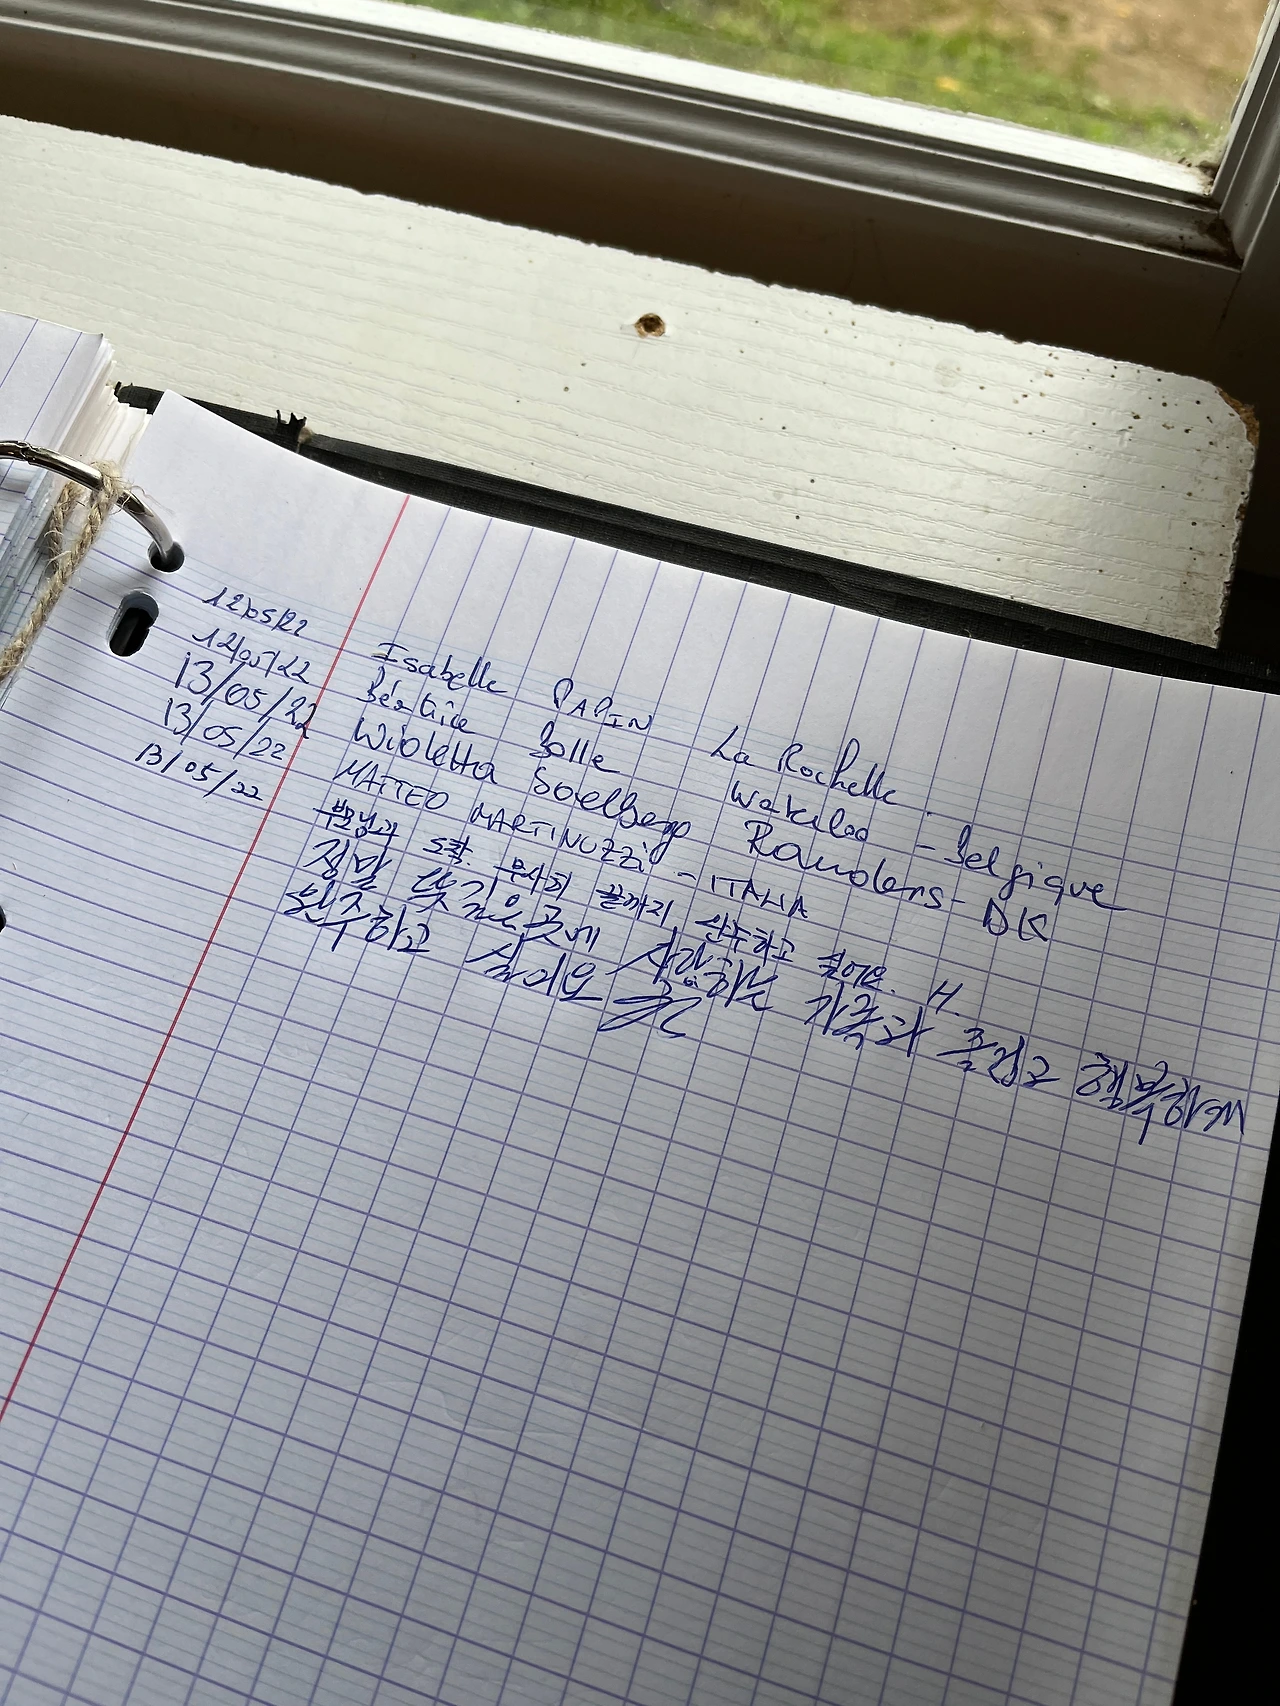 12/05/22 Isabelle PAPIN La Rochelle
12/05/22 Béatrice Bolle Waterloo - Belgique
13/05/22 Wioletta Randers - DK
13/05/22 MATTEO MARTINUZZI - ITALIA
13/05/22 부모님과 도착. 무사히 끝까지 완주하고 싶어요. H.
정말 멋진 곳에 사랑하는 가족과 즐겁고 행복하게
완주하고 싶어요